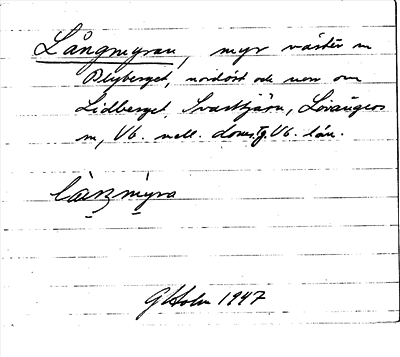 Långmyran, myr väster om
Blyberget, nordöst och norr om
Lidberget, Svarttjärn, Lövångers
sn, Vb. mell. doms. Vb. län.
G Holm 1947